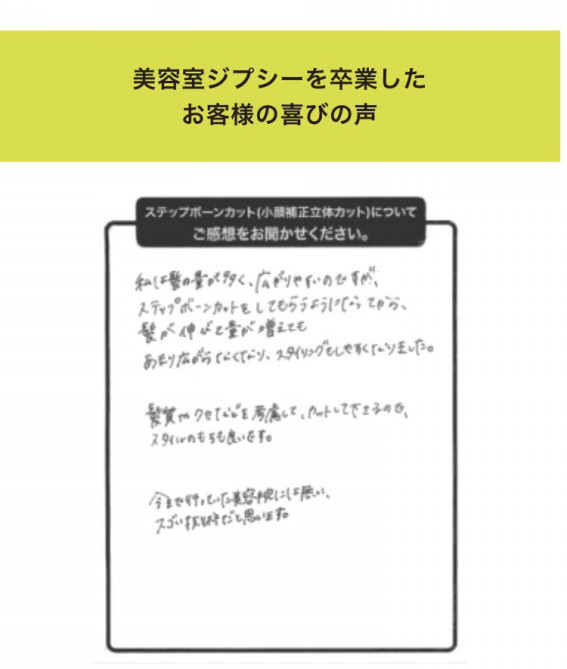 美容室ジプシーを卒業した
お客様の喜びの声
ステップボーンカット(小顔補正立体カット)について
ご感想をお聞かせください。
私は髪の量が多く、広がりやすいのですが、
ステップボーンカットをしてもらうようになってから、
髪が伸びて量が増えても
あまり広がらなくなり、スタイリングもしやすくなりました。
髪質やクセなどを考慮して、カットして下さるので、
スタイルのもちも良いです。
今まで行っていた美容院には無い、
スゴい技術だと思います。